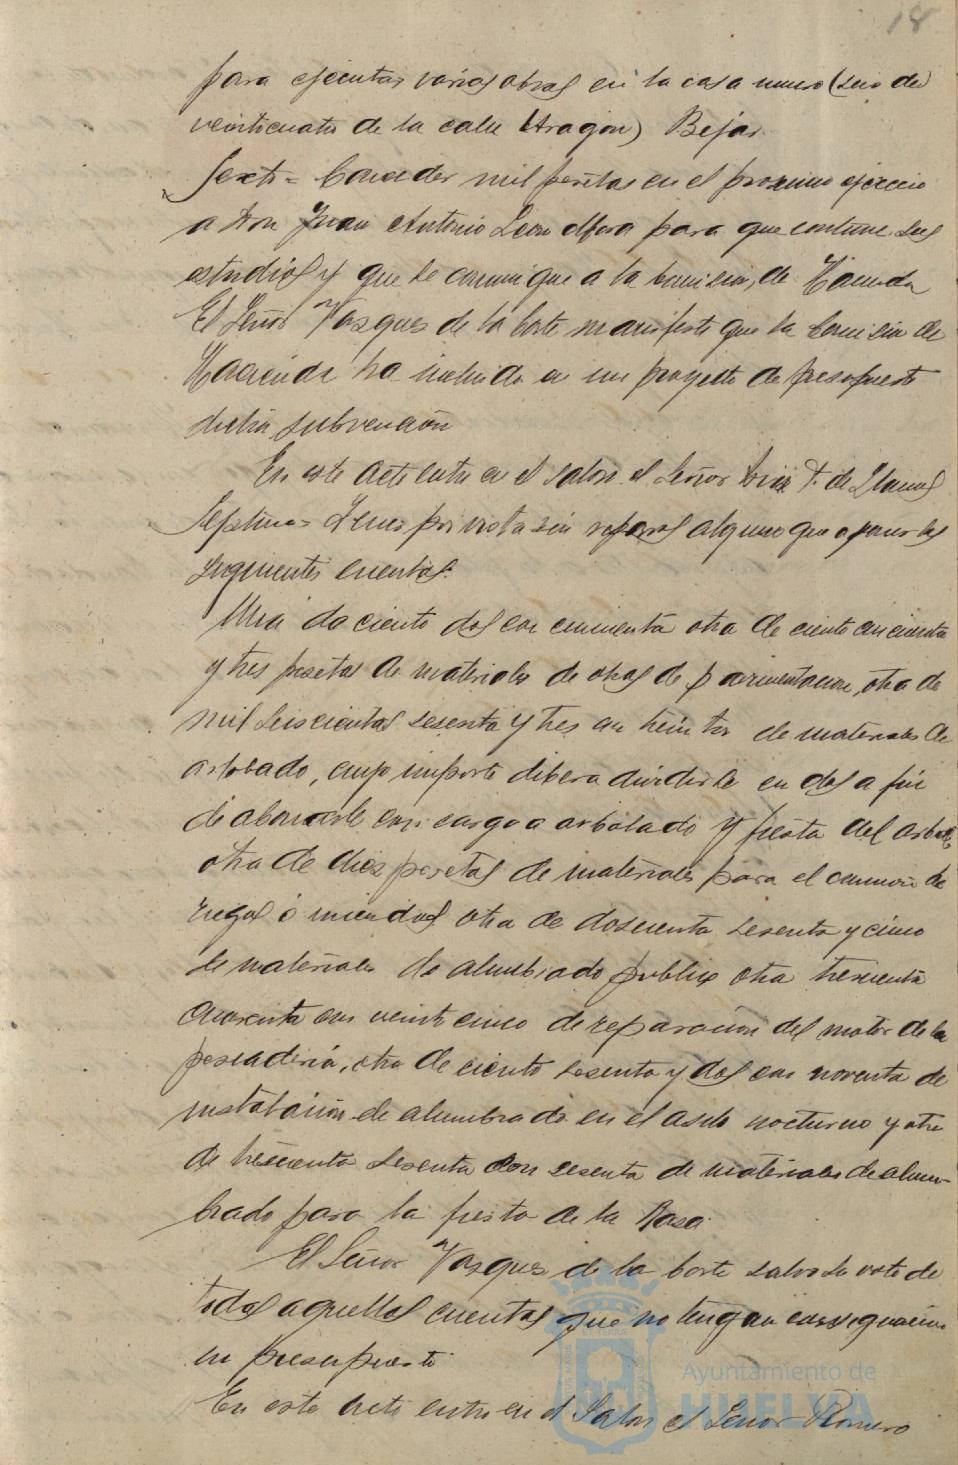 18
para ejecutar varias obras en la casa numero (seis de)
veinticuatro de la calle (Aragon) Bejar.
Sexto = Conceder mil pesetas en el proximo ejercicio
a Don Juan Antonio Leon para que continue sus
estudios y que se comunique a la Comision de Hacienda
El Señor Vazquez de la Corte manifesto que la Comision de
Hacienda ha incluido en su proyecto de presupuesto
dicha subvención
En este acto entra en el salon el Señor Ruiz F. de Llanos
Septimo = Tener por vista sin reparos alguno que oponer las
siguientes cuentas.
Una de ciento dos con cincuenta otra de ciento cincuenta
y tres pesetas de materiales de obras de pavimentacion, otra de
mil seiscientas sesenta y tres con treinta de materiales de
arbolado, cuyo importe debera dividirse en dos a fin
de abonarse con cargo a arbolado y fiesta del arbol,
otra de diez pesetas de materiales para el camion de
riegos o incendios otra de doscienta sesenta y cinco
de materiales de alumbrado publico otra trescienta
cuarenta con veinticinco de reparacion del motor de la
pescaderia, otra de ciento sesenta y dos con noventa de
instalación de alumbrado en el asilo nocturno y otra
de trescienta sesenta con sesenta de materiales de alum-
brado para la fiesta de la Raza.
El Señor Vazquez de la Corte salva su voto de
todas aquellas cuentas que no tengan consignacion
en presupuesto
En este acto entra en el Salon el Señor Romero
Ayuntamiento de
HUELVA